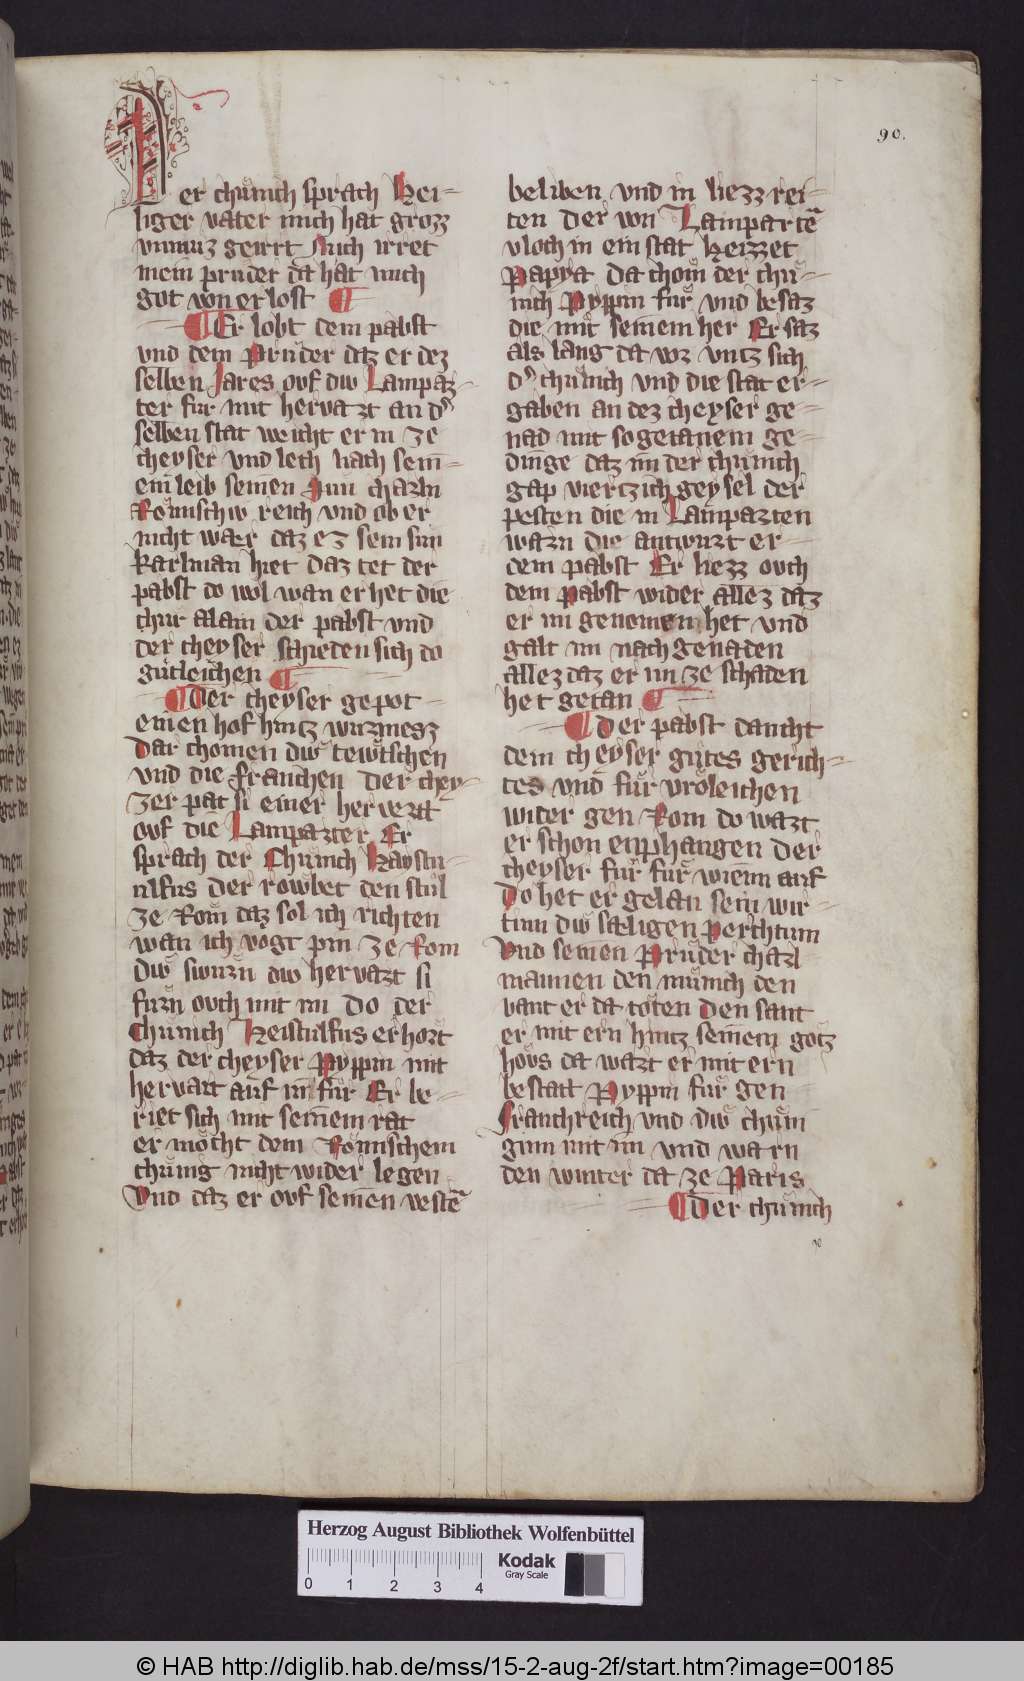 90.
Der chuͤnich sprach Hei-
liger vater mich hat grozz
vnmuz geirrt Auch irret
mein pruder da hat mich
got von erlost ¶
¶ Er lobt dem pabst
vnd dem Pruͤder daz er dez
selben Jares ouf diw Lampar-
ter fur mit hervart an dͤ
selben stat weicht er in ze
cheyser vnd lech nach sein-
em leib seinen sun charln
Roͤmischiv reich vnd ob er
nicht waer daz ez sein sun
karlman hiet Daz tet der
pabst do wol wan er het die
chur alain der pabst vnd
der cheyser schieden sich do
guͤtleichen ¶
¶ Der cheyser gepot
einen hof hintz wurmezz
Dar chomen diw tewtschen
vnd die franchen der chey-
zer pat si einer hervertt
ouf die Lamparter Er
sprach der Chuͤnich Haystu-
ulfus der rowbet den stuͤl
ze Rom daz sol ich richten
wan ich vogt pin ze Rom
diw swurn diw hervart si
fuͤrn ouch mit im Do der
Chuͤnich Heistulfus erhort
daz der cheyser Pyppin mit
hervart auf in fuͤr Er be-
riet sich mit seinem rat
er moͤcht dem Roͤmischem
chuͤnig nicht wider legen
Vnd daz er ouf seinen vestē
beliben vnd in liezz rei-
ten Der von Lampartē
vloch in ein stat heizzet
Papya Da chom der chuͤ-
nich Pyppin fuͤr vnd besaz
die mit seinem her Er saz
als lang da vor vntz sich
dͤ chuͤnich vnd die stat er-
gaben an dez cheyser ge-
nad mit sogetanem ge-
dinge daz im der chuͤnich
gap viertzich geysel der
pesten die in Lamparten
warn die antwurt er-
dem pabst Er hiezz ouch
dem Pabst wider allez daz
er im genomen het vnd
galt im nach genaden
allez daz er im ze schaden
het getan ¶
¶ Der pabst dancht
dem cheyser guͤtes gerich-
tes vnd fuͤr vroͤleichen
wider gen Rom do wart
er schon enphangen Der
cheyser fuͤr fuͤr wienn auf
Do het er gelan sein wir-
tinn diw saͤligen Perchtum
Vnd seinen Pruͤder charl
mannen den muͤnich den
vant er da toten Den sant
er mit ern hintz seinem gotz
hous da wart er mit ern
bestatt Pyppin fuͤr gen
franchreich vnd diw chuͤni
ginn mit im vnd warn
den winter da ze Paris
¶ Der chuͤnich
Herzog August Bibliothek Wolfenbüttel
Kodak
Gray Scale
0 1 2 3 4
© HAB http://diglib.hab.de/mss/15-2-aug-2f/start.htm?image=00185